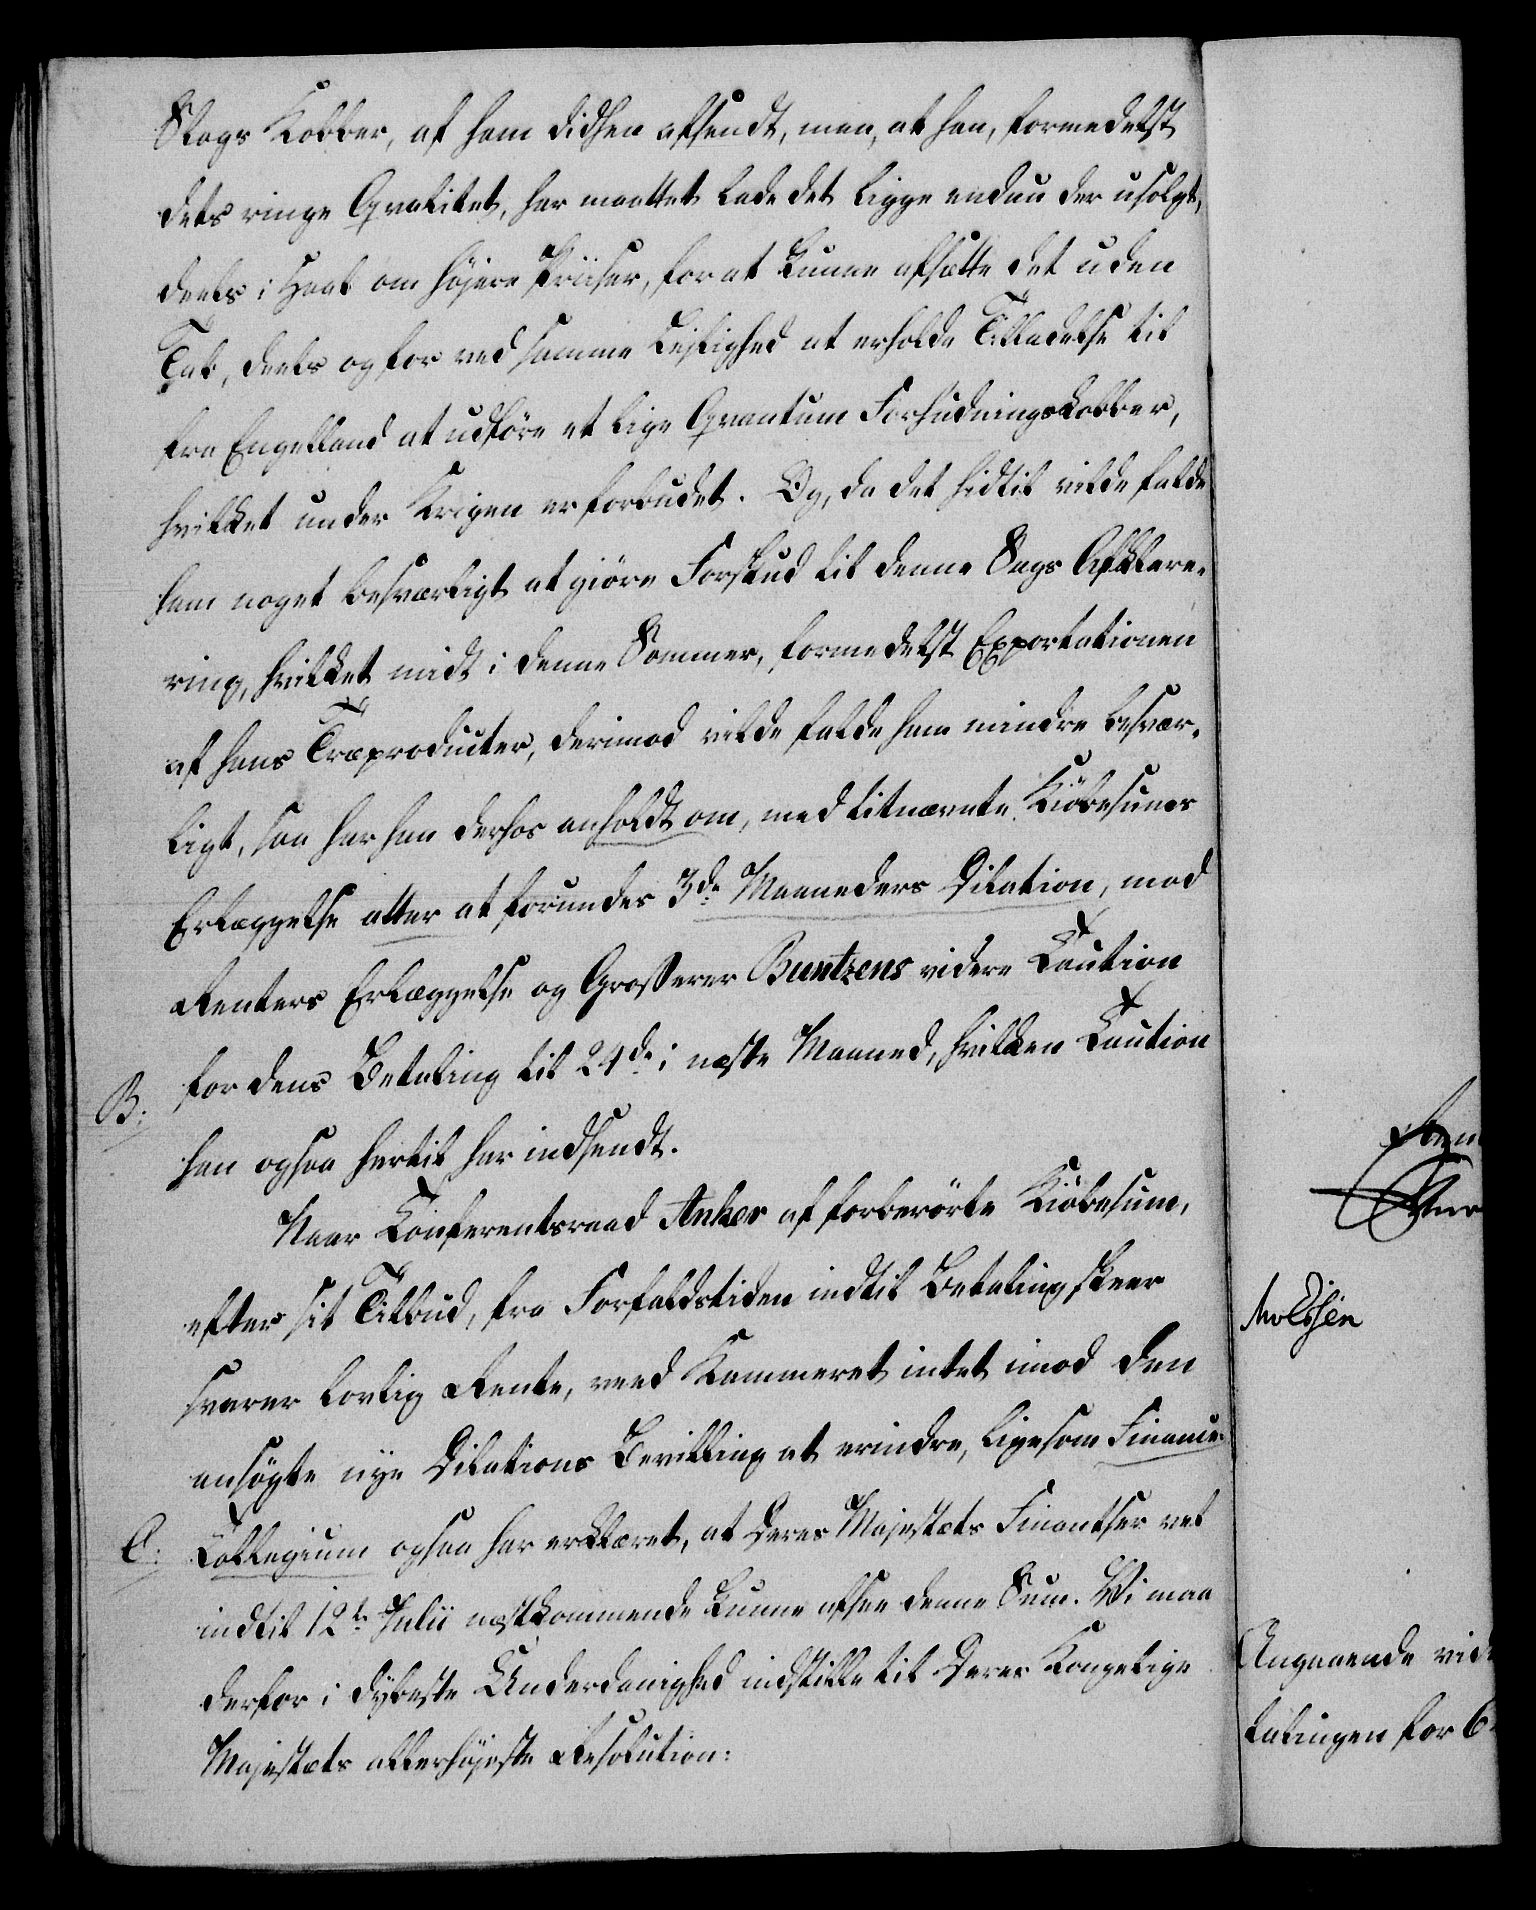 Slags Kobber, af ham didhen afsendt, men, at han, formedelst
dets ringe Qvalitet, har maattet lade det ligge endnu der usolgt,
deels i Haab om højere Priiser, for at kunne afsætte det uden
Tab, deels og for ved samme Lejlighed at erholde Tilladelse til
fra Engelland at udföre et lige Qvantum Forhudningskobber,
hvilket under Krigen er forbudet. Og, da det hidtil vilde falde
ham noget besværligt at giöre Forskud til denne Sags Afklare-
ring, hvilket midt i denne Sommer, formedelst Exportationen
af hans Træproducter, derimod vilde falde ham mindre besvær-
ligt, saa har han derhos anholdt om, med bitnævnte Kiöbesums
Erlæggelse atter at forundes 3de Maaneders Dilation, mod
Renters Erlæggelse og Grosserer Buntzens videre Caution
for dens Betaling til 24de i næste Maaned, hvilken Caution
B:
han ogsaa hertil har indsendt.
Naar Conferentsraad Anker af forberörte Kiöbesum,
efter sit Tilbud, fra Forfaldstiden indtil Betaling skeer
svarer lovlig Rente, veed Kammeret intet imod den
ansögte nye Dilations Bevilling at erindre, ligesom Finance-
C: Collegium ogsaa har erklæret, at Deres Majestæts Finantser vel
indtil 12te Julii næstkommende kunne afsee denne Sum. Vi maa
derfor i dybeste Underdanighed indstille til Deres Kongelige
Majestæts allerhöjeste Resolution:
Angaaende
talingen for